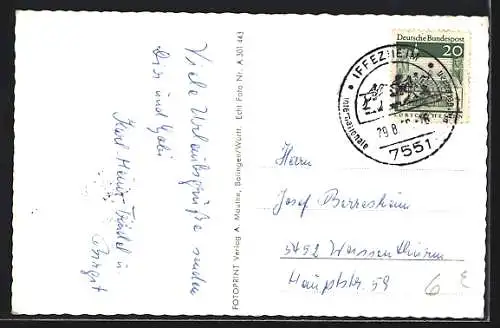 Viele Urlaubsgrüße senden
Dir und Gabi
Karl Heinz
Birgit
FOTOPRINT Verlag A. Mauthe, Balingen/Württ. Echt Foto Nr. A 301 443
Deutsche Bundespost
20
IFFEZHEIM
Internationale
29.8.
7551
Herrn
Josef Berresheim
5452 Weissenthurm
Hauptstr. 59
6 €